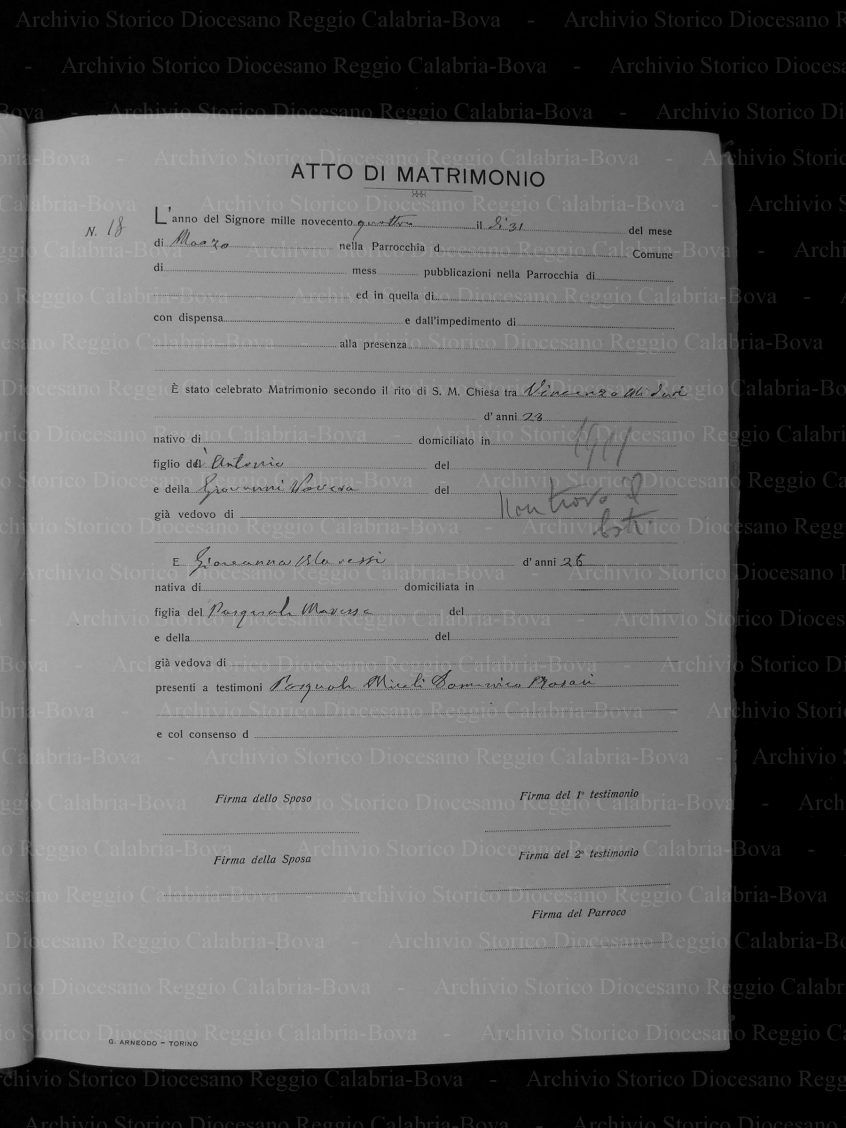 ATTO DI MATRIMONIO
N. 18
L'anno del Signore mille novecento quattro il dì 31 del mese
di Marzo nella Parrocchia d Comune
di mess pubblicazioni nella Parrocchia di
ed in quella di
con dispensa e dall'impedimento di
alla presenza
È stato celebrato Matrimonio secondo il rito di S. M. Chiesa tra Vincenzo
d' anni 28
nativo di domiciliato in
figlio di Antonio del
e della Giovanni del
già vedovo di
non trovo il
E Giovanna d' anni 26
nativa di domiciliata in
figlia del Pasquale del
e della del
già vedova di
presenti a testimoni Pasquale Miceli Domenico
e col consenso d
Firma dello Sposo Firma del 1° testimonio
Firma della Sposa Firma del 2° testimonio
Firma del Parroco
G. ARNEODO - TORINO
Archivio Storico Diocesano Reggio Calabria-Bova